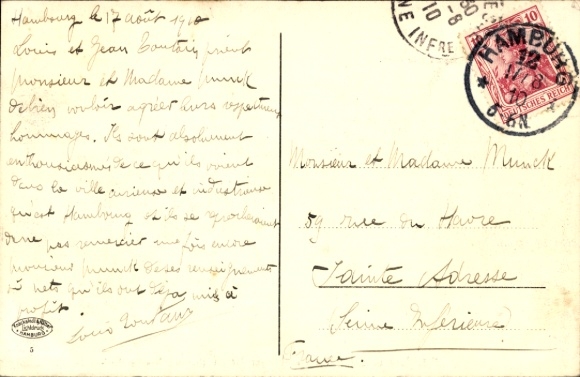 Hambourg le 17 août 1910
Louis et Jean Toutain prient
monsieur et Madame Munck
de bien vouloir agréer leurs respectueux
hommages. Ils sont absolument
enthousiasmés de ce qu'ils voient
dans la ville curieuse et industrieuse
qu'est Hambourg et ils se reprocheraient
de ne pas remercier une fois encore
monsieur Munck de ses renseignements
si nets qu'ils ont déjà mis à
profit
Louis Toutain
HAMBURG
5
HAMBURG
12
17.8
10
6-7N
10
DEUTSCHES REICH
NE INFRE
10
8-8
Monsieur et Madame Munck
59 rue du Havre
Sainte Adresse
Seine Inférieure
France.